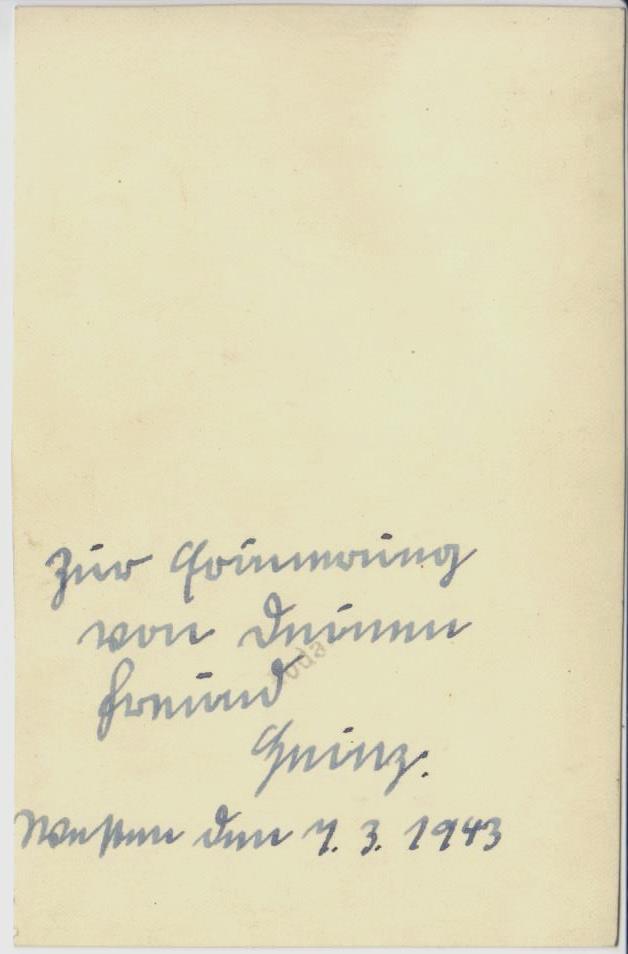 Zur Erinnerung
von Deinen
Freund
Heinz.
Westen den 7. 3. 1943